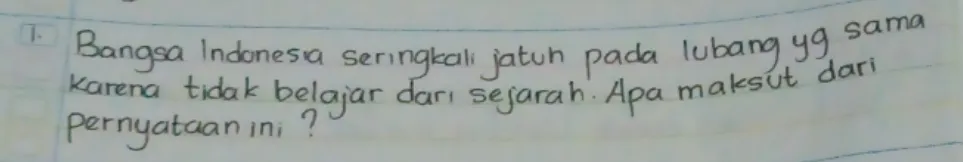 1. Bangsa Indonesia seringkali jatuh pada lubang yg sama
karena tidak belajar dari sejarah. Apa maksut dari
pernyataan ini ?